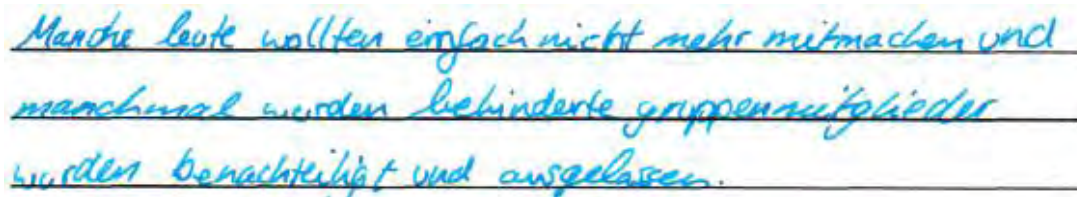 Manche leute wollten einfach nicht mehr mitmachen und
manchmal wurden behinderte gruppenmitglieder
wurden benachteiligt und ausgelassen.